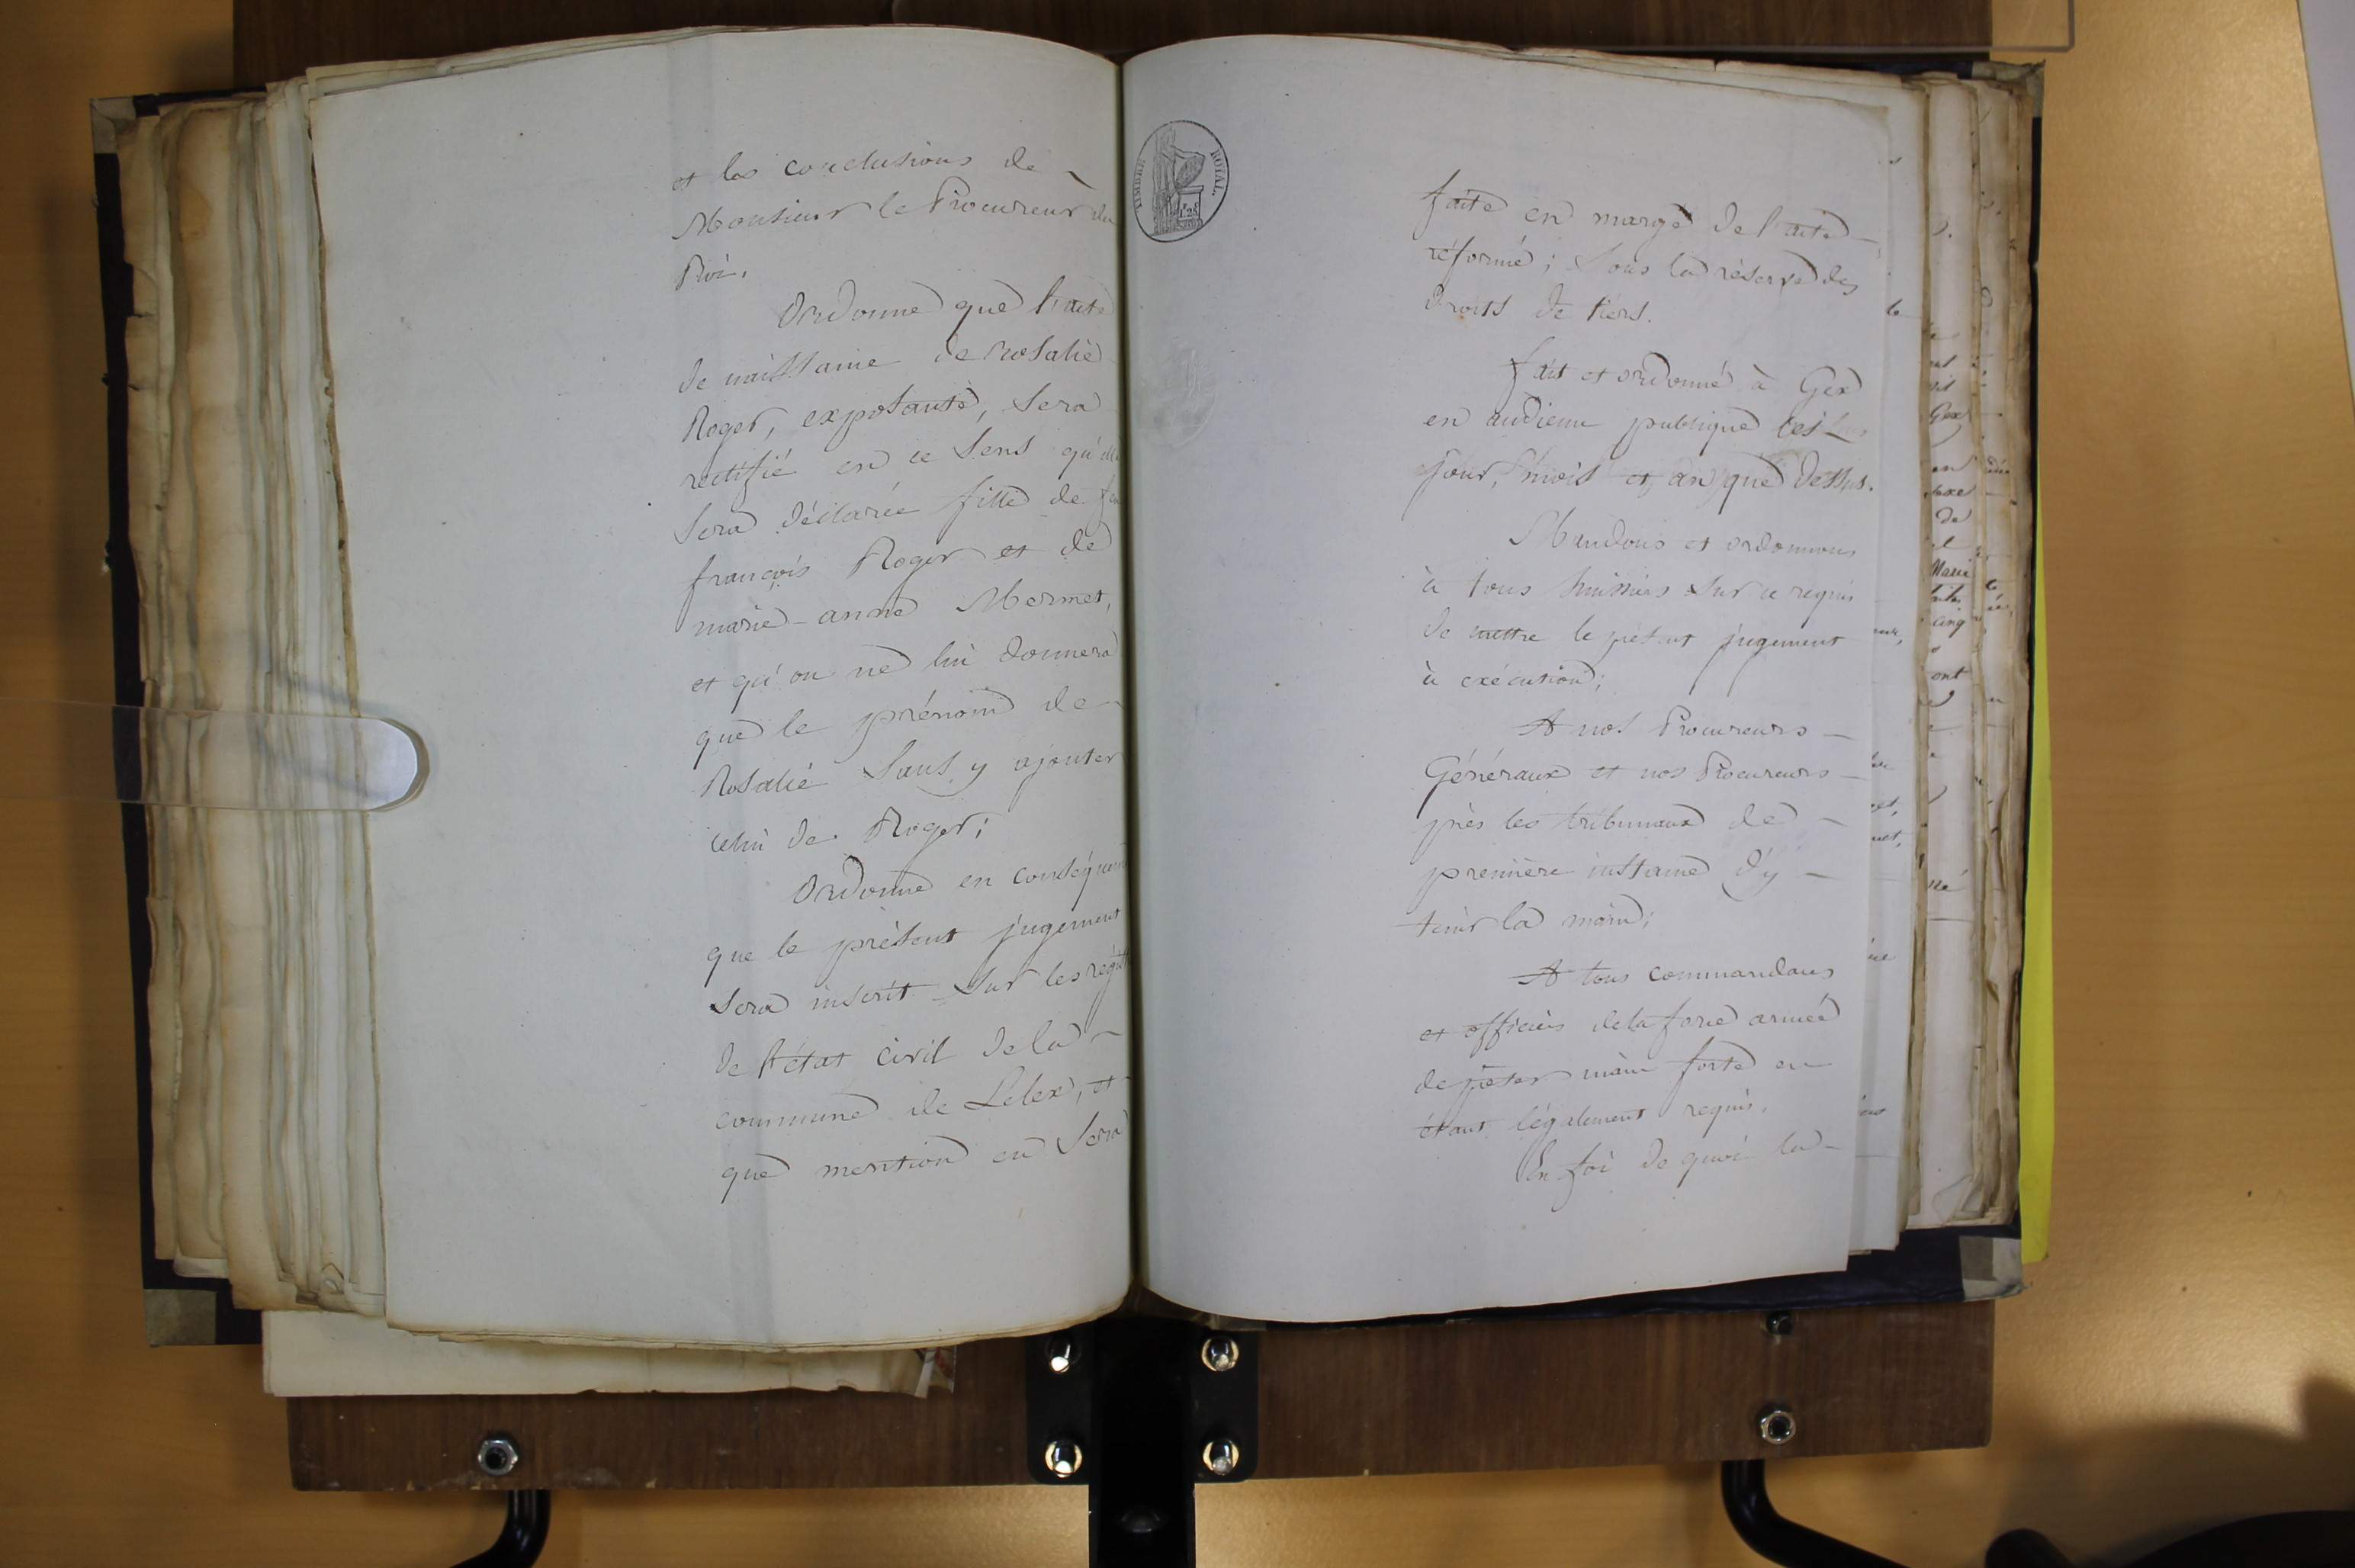 et les conclusions de
Monsieur le Procureur du
Roi.
Ordonne que l'acte
de naissance de Rosalie
Roger, exposante, sera
rectifié en ce sens qu'elle
sera déclarée fille de feu
françois Roger et de
marie-anne Mermet,
et qu'on ne lui donnera
que le prénom de
Rosalie sans y ajouter
celui de Roger;
Ordonne en conséquence
que le présent jugement
sera inscrit sur les
de l'état civil de la
commune de Lelex, et
que mention en sera
TIMBRE ROYAL
faite en marge de l'acte
réformé; sous la réserve des
droits de tiers.
fait et ordonné à Gex
en audience publique les
jour, mois et an que dessus.
Mandons et ordonnons
à tous huissiers sur ce requis
de mettre le présent jugement
à exécution;
A nos Procureurs
Généraux et nos Procureurs
près les tribunaux de
première instance d'y
tenir la main;
A tous commandans
et officiers de la force armée
de prêter main forte en
étant légalement requis.
En foi de quoi la